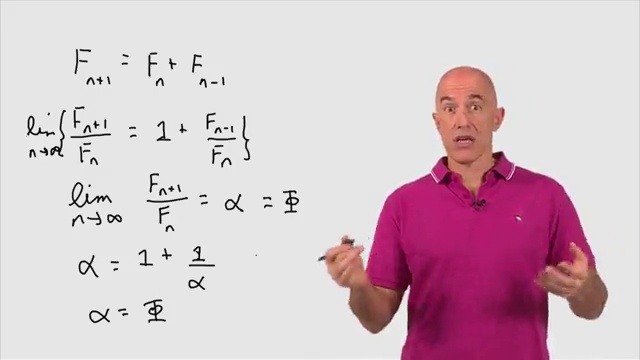 F_{n+1} = F_n + F_{n-1}
lim_{n→∞} { F_{n+1}/F_n = 1 + F_{n-1}/F_n }
lim_{n→∞} F_{n+1}/F_n = α = Φ
α = 1 + 1/α
α = Φ